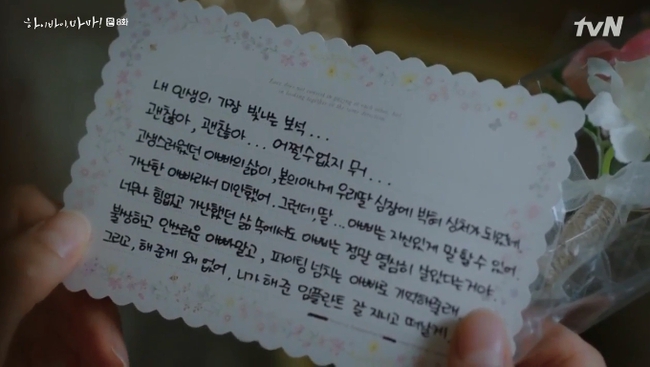 하이바이,마마! 본 8화
tvN
내 인생의 가장 빛나는 보석...
괜찮아, 괜찮아... 어쩔수없지 뭐...
고생스러웠던 아빠의삶이, 본의아니게 우리딸 심장에 박혀 상처가 되었겠네.
가난한 아빠라서 미안했어. 그런데, 딸... 아빠는 자신있게 말할 수 있어
너무나 힘없고 가난했던 삶 속에서도 아빠는 정말 열심히 살았다는거야..
불쌍하고 안쓰러운 아빠말고, 파이팅 넘치는 아빠로 기억해줄래..
그리고, 해준게 왜 없어, 니가 해준 임플란트 잘 지니고 떠날게